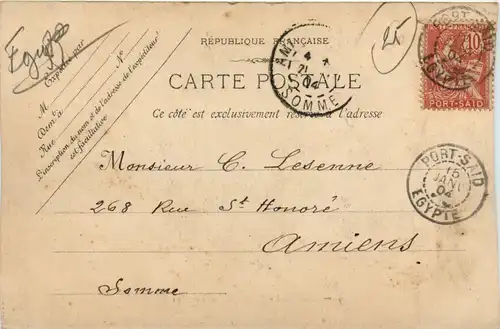 Egypte
RÉPUBLIQUE FRANÇAISE
CARTE POSTALE
Ce côté est exclusivement réservé à l'adresse
Expédié par
M
N°
Demt à
Rue
L'inscription du nom et de l'adresse de l'expéditeur
est facultative
AMI
21
04
SOMME
PORT-SAID
EGYPTE
10
PORT-SAID
PORT-SAID
15
JANV
04
EGYPTE
Monsieur C. Lesenne
268 Rue St Honoré
Amiens
Somme